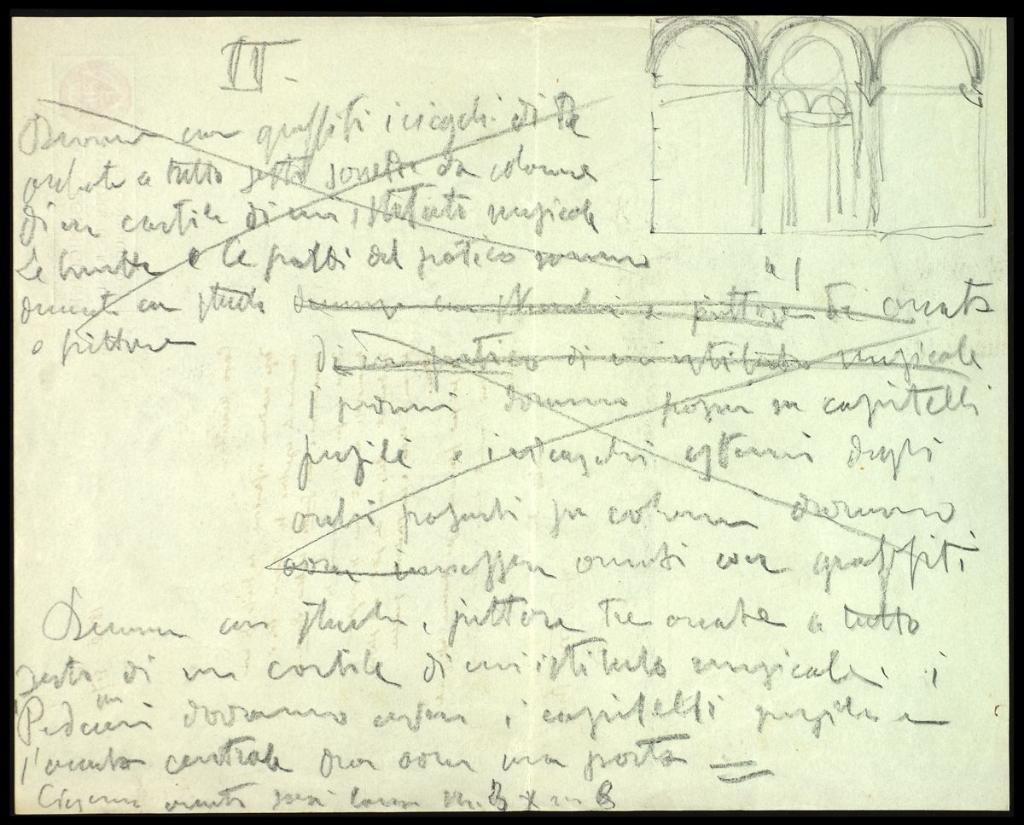 II.
Decorare con graffiti i cicagli di tre
arcate a tutto sesto sorrette da colonne
di un cortile di un istituto musicale
Le lunette e le del portico saranno
decorate con stucchi decorare con stucchi e pitture tre arcate
o pitture
di un portico di un istituto musicale
I peducci dovranno posare su capitelli
pensili e i esterni degli
archi posanti su colonne dovranno
essere ornati con graffiti
Decorare con stucchi e pitture tre arcate a tutto
sesto di un cortile di un istituto musicale. i
Peducci dovranno essere i capitelli pensili e
l'arcata centrale dovrà avere una porta
Ciascuna arcata sarà larga m 3 x m